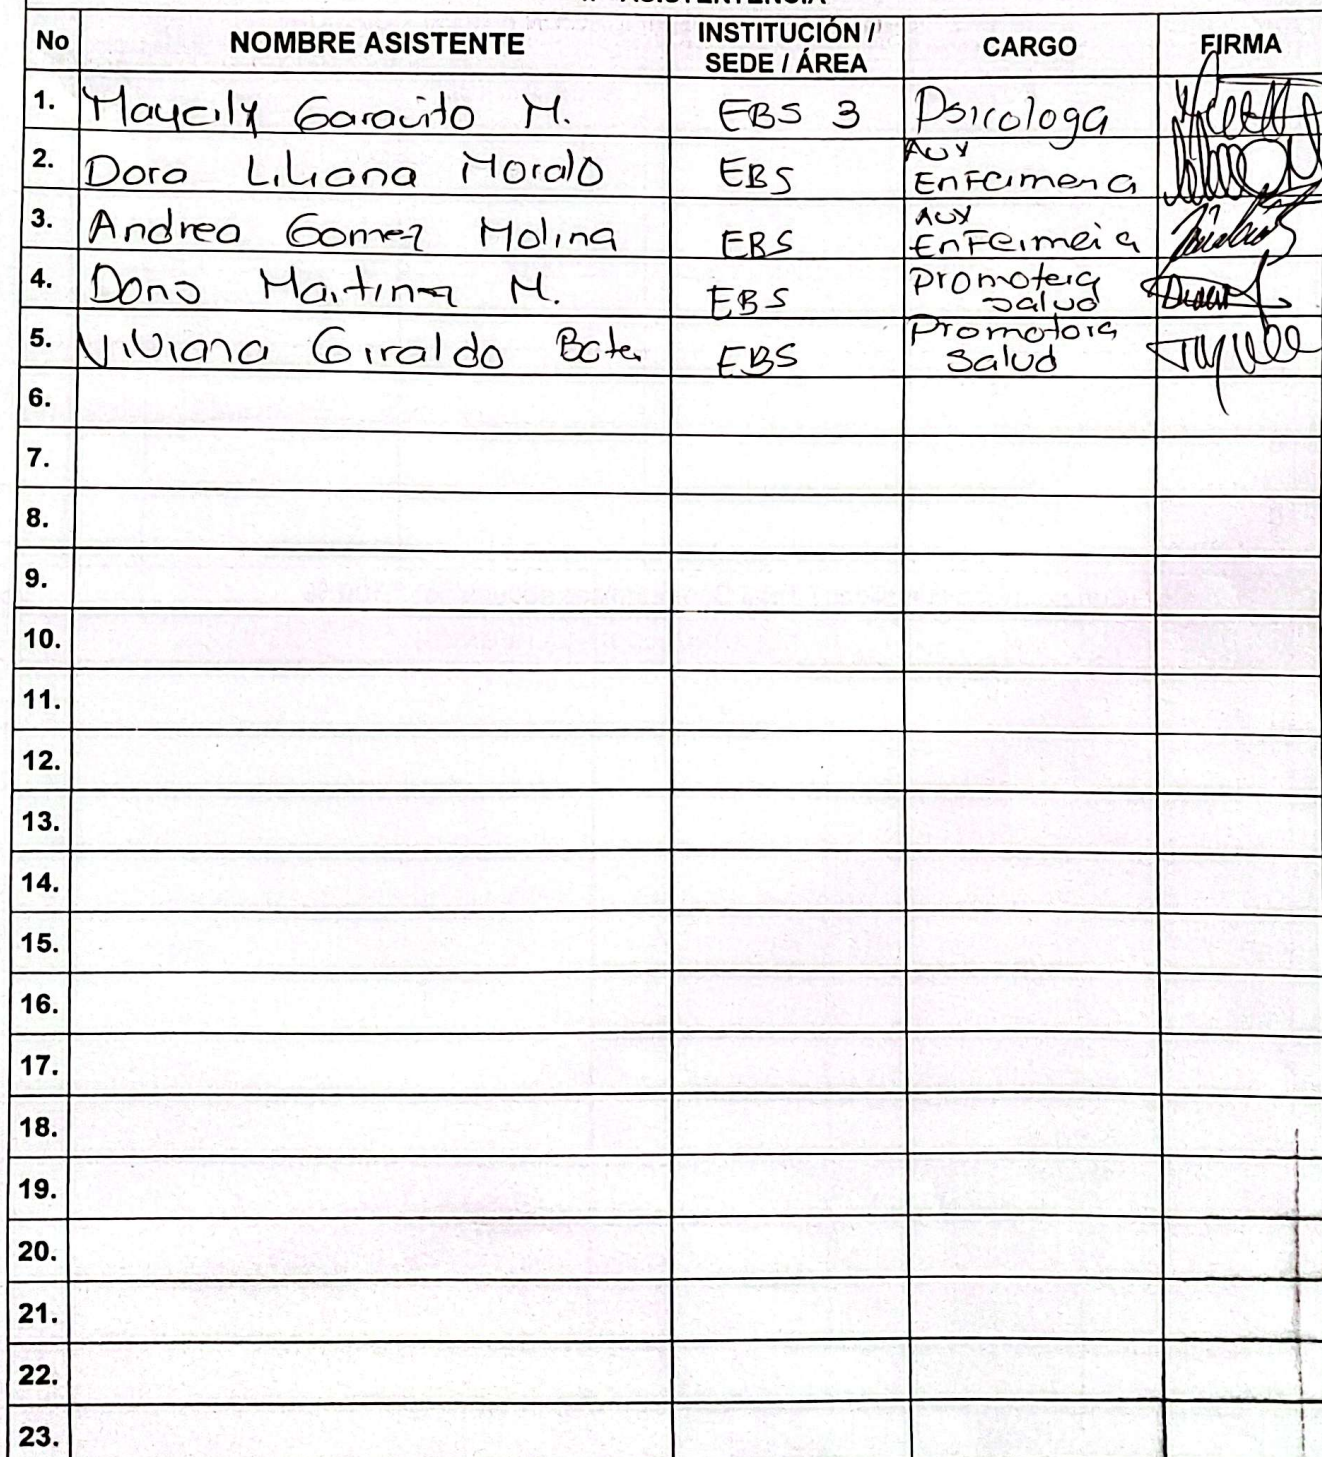 No NOMBRE ASISTENTE INSTITUCIÓN / SEDE / ÁREA CARGO FIRMA
1. Maycily Garavito M. EBS 3 Psicologa
2. Dora Liliana Moralo EBS Aux Enfermera
3. Andrea Gomez Molina EBS Aux Enfermera
4. Martinez M. EBS promotora salud
5. Viviana Giraldo EBS Promotora Salud
6.
7.
8.
9.
10.
11.
12.
13.
14.
15.
16.
17.
18.
19.
20.
21.
22.
23.